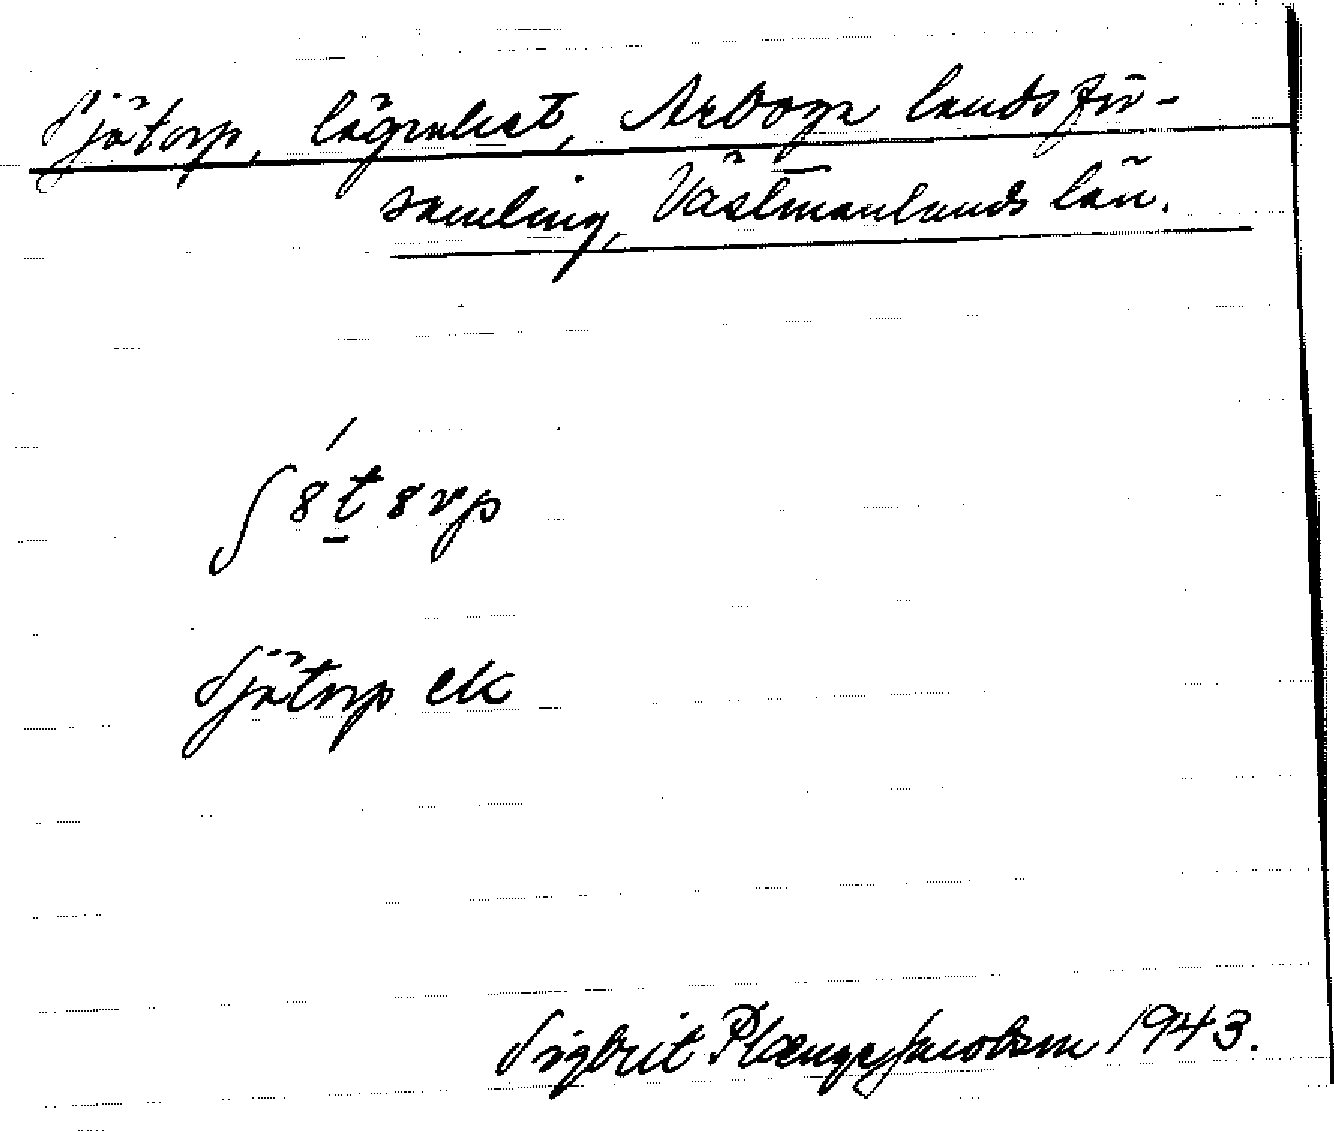 Sjötorp, lägenhet, Arboga landsför-
samling, Västmanlands län.
ʃ8t8rp
Sjötorp ek
Sigbrit Plænge Jacobson 1943.